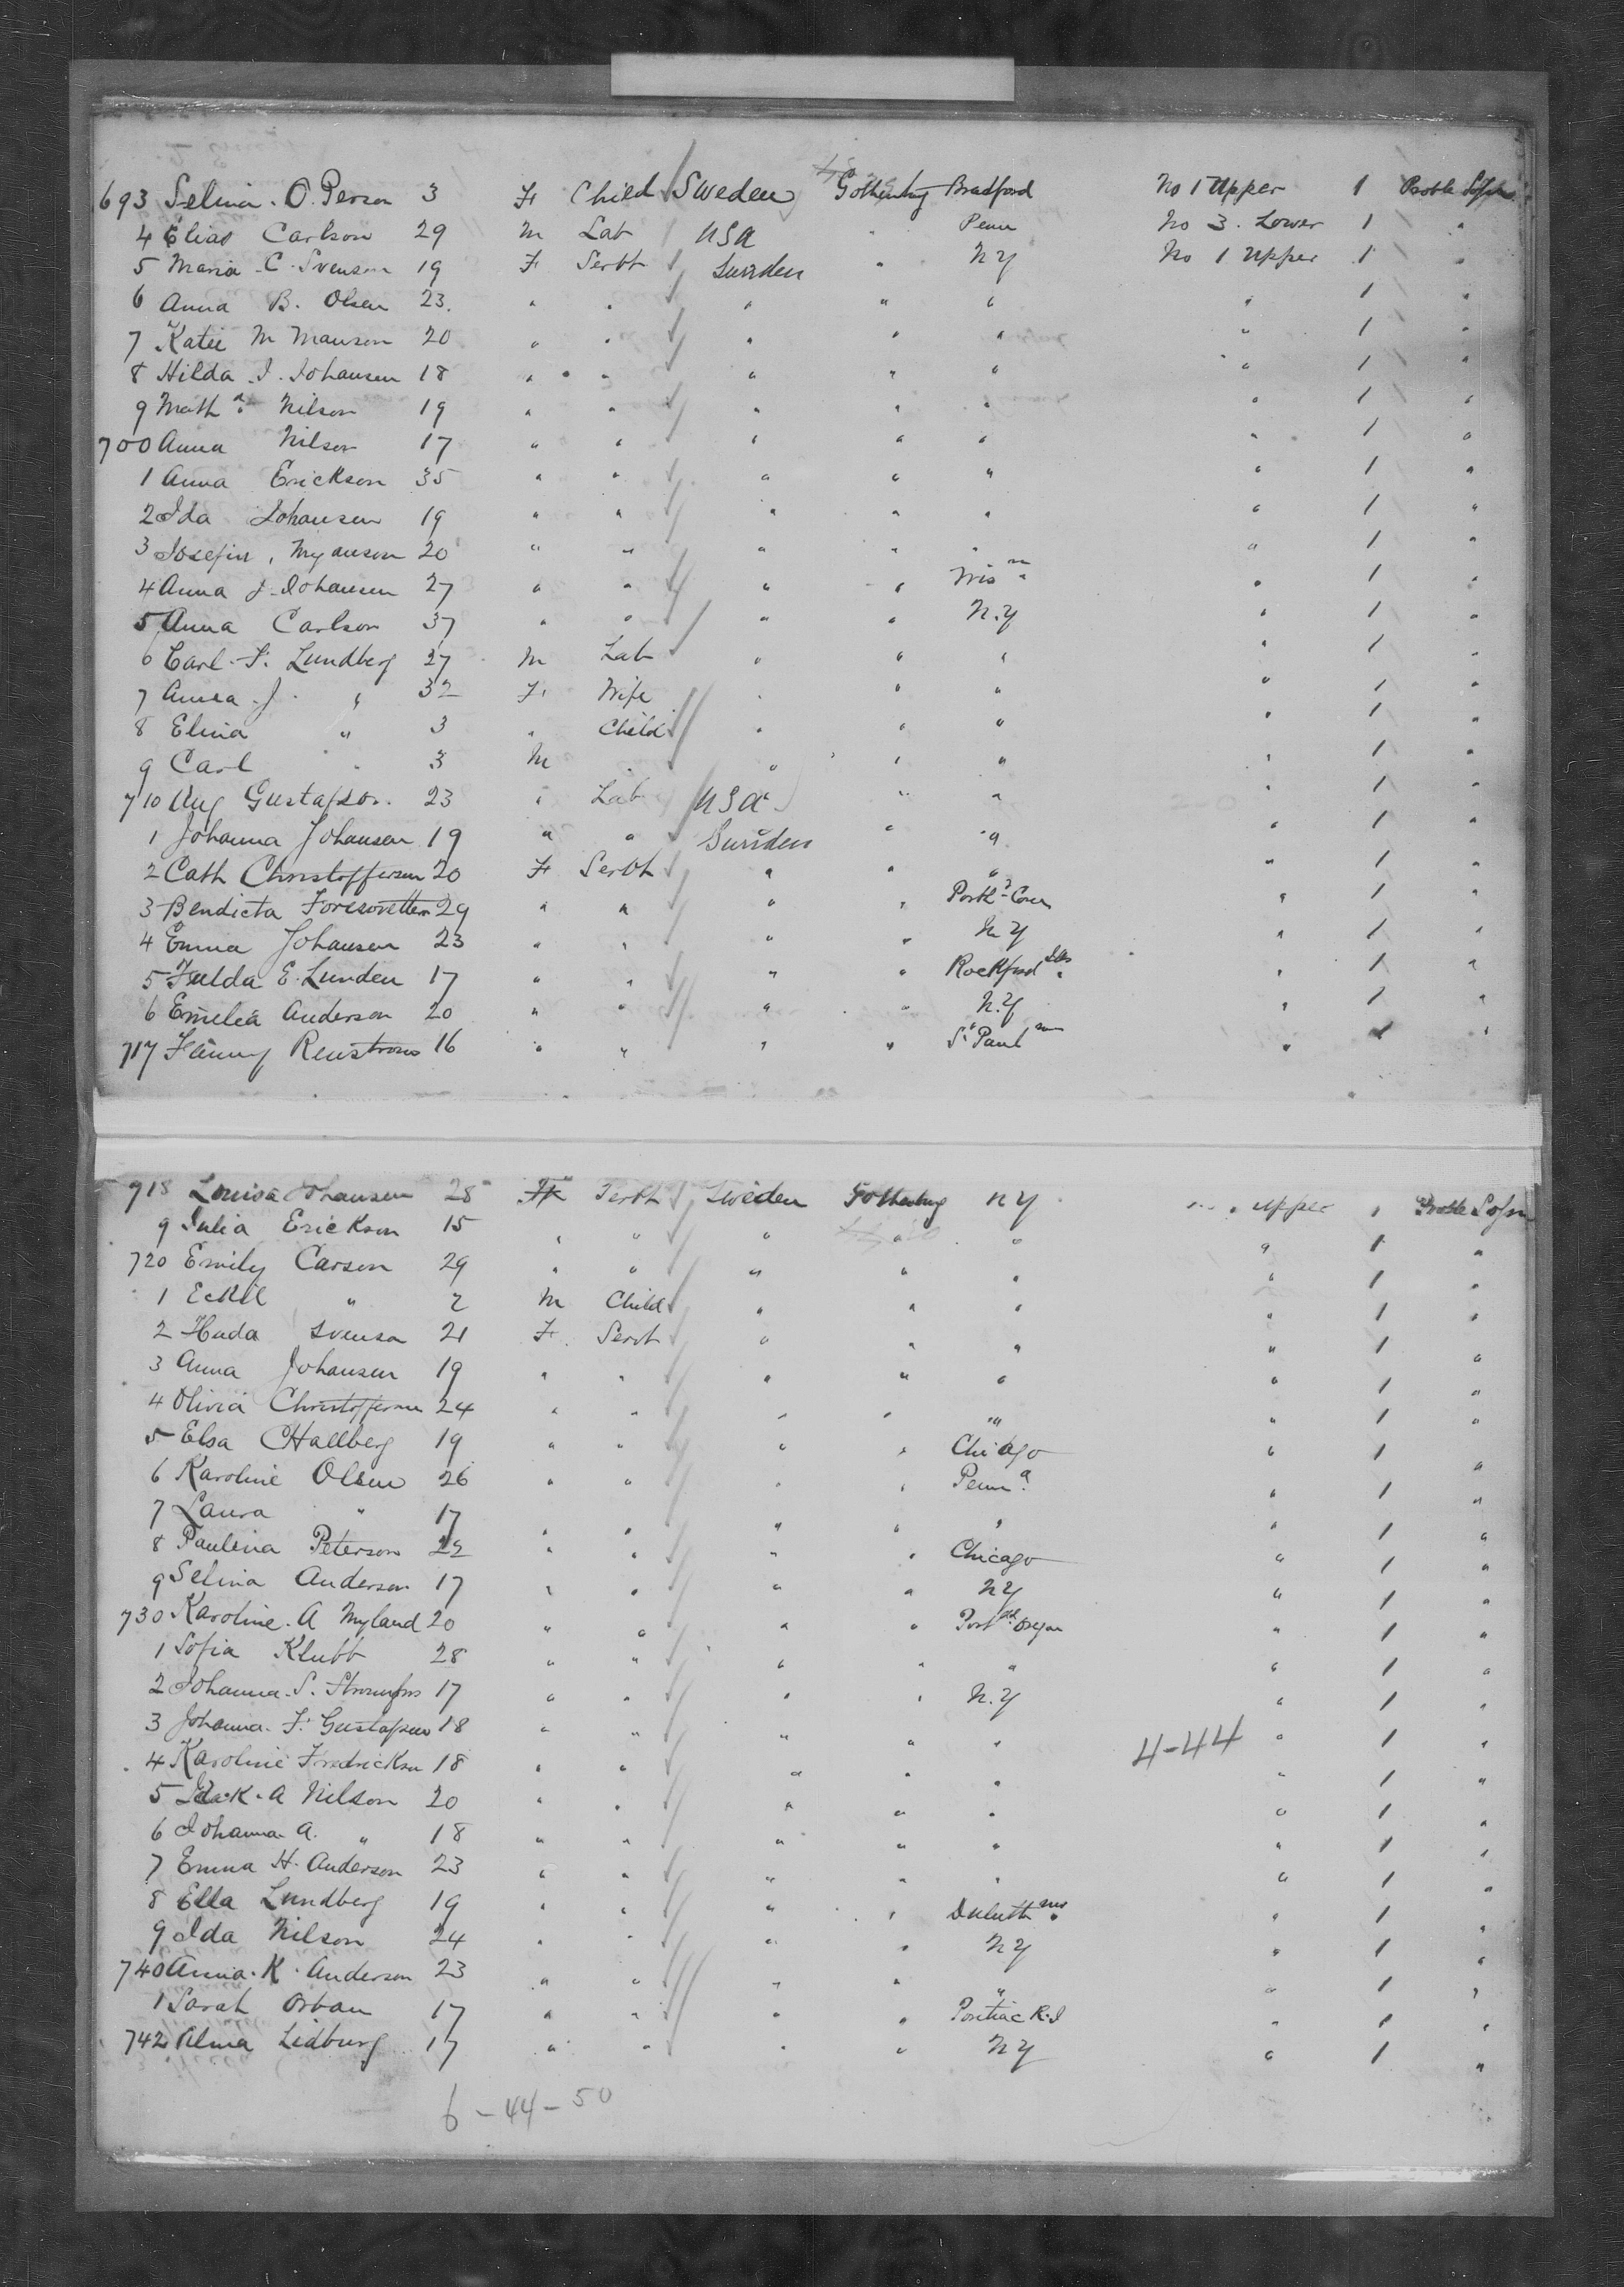 693 Selina . O. Person 3 F Child Sweden Gothenbg Bradford No 1 Upper 1 Proble Sojn
4 Elias Carlson 29 M Lab USA " Penn No 3 . Lower 1 "
5 Maria . C . Svenson 19 F Servt Sweden " NY No 1 Upper 1 "
6 Anna B. Olsen 23. " " " " " " 1 "
7 Katie M Manson 20 " " " " " " 1 "
8 Hilda . I . Johansen 18 " " " " " " 1 "
9 Math a Nilson 19 " " " " " " 1 "
700 Anna Nilson 17 " " " " " " 1 "
1 Anna Erickson 35 " " " " " " 1 "
2 Ida Johansen 19 " " " " " " 1 "
3 Josefin , Myanson 20 " " " " " " 1 "
4 Anna J. Johansen 27 " " " " Wis " 1 "
5 Anna Carlson 37 " " " " N.Y " 1 "
6 Carl . F. Lundberg 27 M Lab " " " " 1 "
7 Anna . J . " 32 F Wife " " " " 1 "
8 Elina " 3 " Child " " " " 1 "
9 Carl " 3 M " " " " 1 "
710 Aug Gustafson . 23 " Lab USA " " " 1 "
1 Johanna Johansen 19 " " Sweden " " " 1 "
2 Cath Christofferson 20 F Servt " " " " 1 "
3 Bendicta 29 " " " " Portd Con " 1 "
4 Emma Johansen 23 " " " " N Y " 1 "
5 Fulda E. Lunden 17 " " " " Rockford Ills " 1 "
6 Emelia Anderson 20 " " " " N.Y " 1 "
717 Fanny Renstrom 16 " " " " St Paul " 1 "
718 Louisa Johansen 28 F Servt Sweden Gothenbg NY " Upper 1 Proble Sojn
9 Julia Erickson 15 " " " " " " 1 "
720 Emily Carson 29 " " " " " " 1 "
1 Eckil " 2 M Child " " " " 1 "
2 Huda Svenson 21 F. Servt " " " " 1 "
3 Anna Johansen 19 " " " " " " 1 "
4 Olivia Christofferson 24 " " " " " " 1 "
5 Elsa Hallberg 19 " " " " Chicago " 1 "
6 Karoline Olsen 26 " " " " Penna " 1 "
7 Laura " 17 " " " " " " 1 "
8 Paulina Peterson 22 " " " " Chicago " 1 "
9 Selina Anderson 17 " " " " NY " 1 "
730 Karoline . A Myland 20 " " " " Portld Oregon " 1 "
1 Sofia Klubb 28 " " " " " " 1 "
2 Johanna . S. 17 " " " " N.Y " 1 "
3 Johanna . F. Gustafson 18 " " " " " 4-44 " 1 "
4 Karoline Fredrickson 18 " " " " " " 1 "
5 Ida . K . A Nilson 20 " " " " " " 1 "
6 Johanna A. " 18 " " " " " " 1 "
7 Emma H. Anderson 23 " " " " " " 1 "
8 Ella Lundberg 19 " " " " Duluth " 1 "
9 Ida Nilson 24 " " " " NY " 1 "
740 Anna . K . Anderson 23 " " " " " " 1 "
1 Sarah Orban 17 " " " " Pontiac R.I " 1 "
742 Alma Lidburg 17 " " " " NY " 1 "
6-44-50